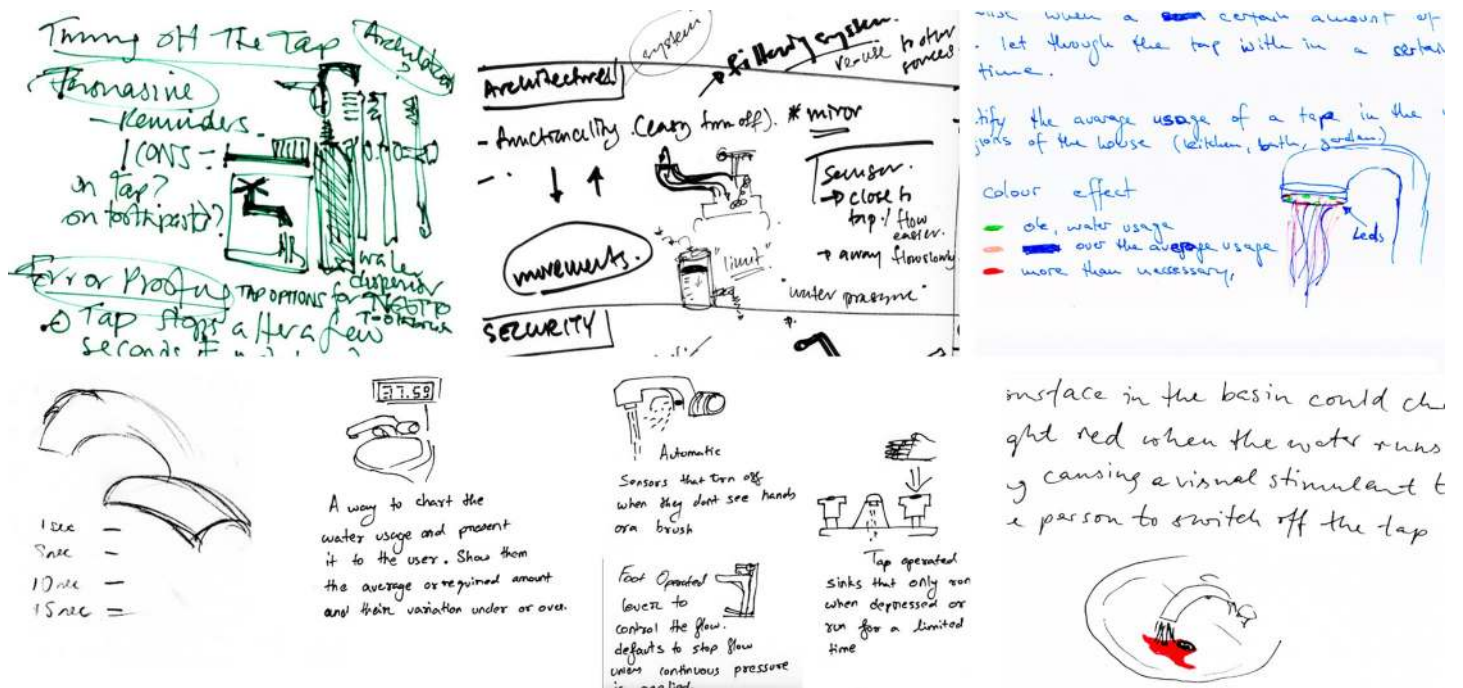 Turning off The Tap
Architectural
?
Persuasive
- Reminders.
ICONS =
on Tap?
on toothpaste?
water
Error Proofing TAP OPTIONS for
Tap stops after a few
seconds
system
Architectures
- functionality (easy turn off).
movements.
SECURITY
re-use to other
* miror
Sensor.
→ close to
tap / flow
easier.
→ away flow slowly
"limit"
"water pressure"
when a certain amount of
let through the tap with in a sertain
time.
tify the avarage usage of a tap in the
of the house (kitchen, bath, garden)
colour effect
ok, water usage
over the average usage
more than neccessary,
Leds
1 sec
5 sec
10 sec
15 sec
37.59
A way to chart the
water usage and present
it to the user. Show them
the average or required amount
and their variation under or over.
Automatic
Sensors that turn off
when they dont see hands
or a brush
Foot Operated
lever to
control the flow.
defaults to stop flow
unless continuous pressure
is applied.
Tap operated
sinks that only run
when depressed or
run for a limited
time
in the basin could
red when the water runs
causing a visual stimulent
person to switch off the tap